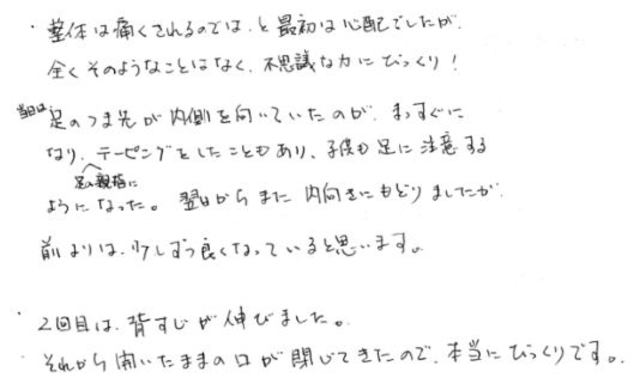 ・整体は痛くされるのでは、と最初は心配でしたが、
全くそのようなことはなく、不思議な力にびっくり！
当日は足のつま先が内側を向いていたのが、まっすぐに
なり、足の親指にテーピングをしたこともあり、子供も足に注意する
ようになった。翌日からまた内向きにもどりましたが、
前よりは、少しずつ良くなっていると思います。
・2回目は、背すじが伸びました。
・それから開いたままの口が閉じてきたので、本当にびっくりです。